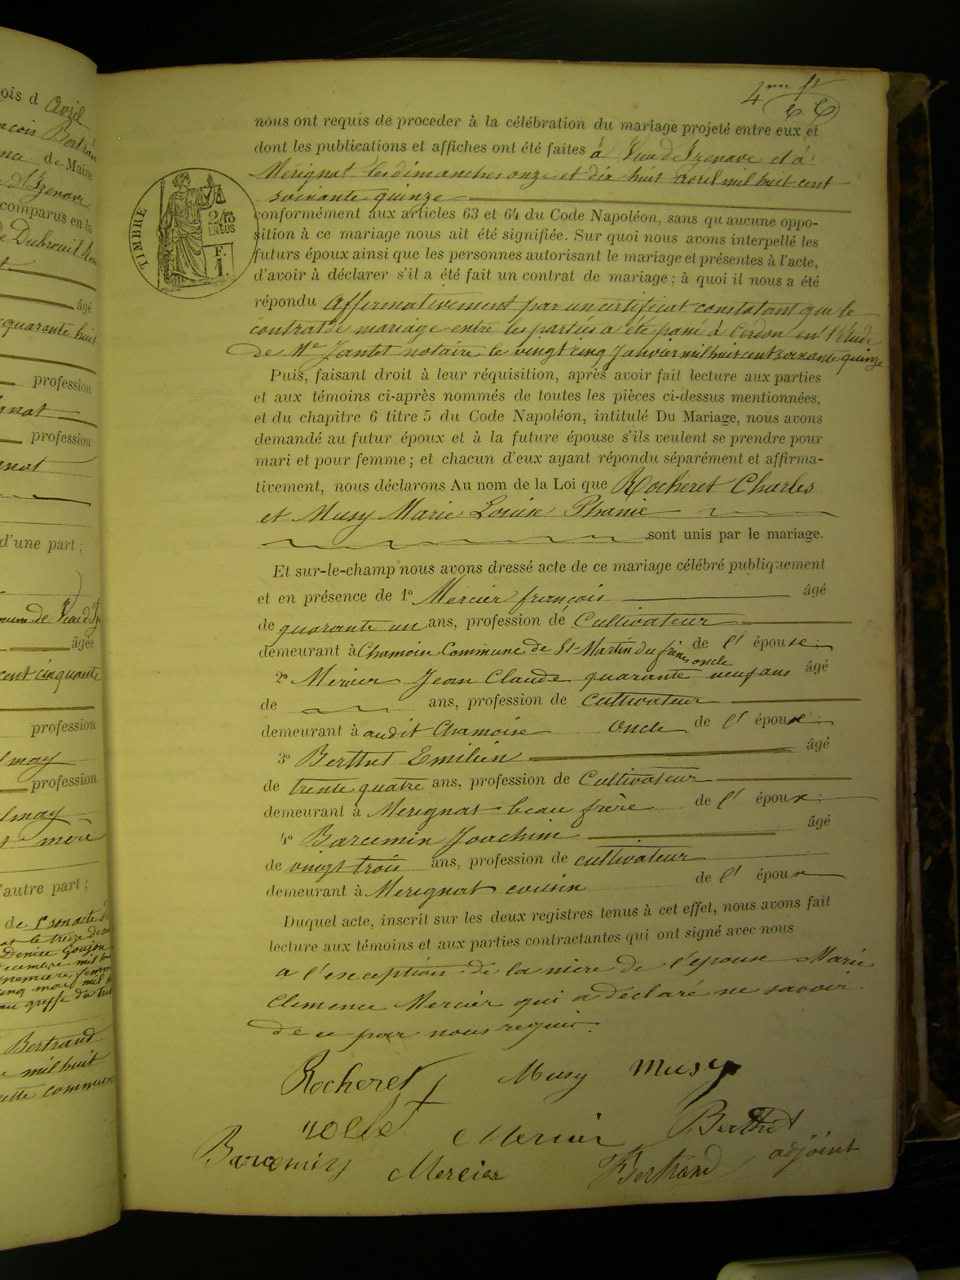 ois d Avril
ncois Bertran
de Maire
d'Izenave
comparus en la
de Dubreuil
âgé
quarante huit
profession
gnat
profession
gnat
d'une part ;
mune de Vieu d'Iz
âgée
cent cinquante
profession
lmay
profession
lmay
mère
l'autre part ;
de l'son acte
et le treize
Denise Goujon
cembre mil
première
cinq mars mil
au greffe du
Bertrand
mil huit
cette commune
4me ft
nous ont requis de proceder à la célébration du mariage projeté entre eux et
dont les publications et affiches ont été faites à Vieu d'Izenave et à
Mérignat les dimanches onze et dix huit avril mil huit cent
soixante quinze
TIMBRE
conformément aux articles 63 et 64 du Code Napoléon, sans qu'aucune oppo-
sition à ce mariage nous ait été signifiée. Sur quoi nous avons interpellé les
futurs époux ainsi que les personnes autorisant le mariage et présentes à l'acte,
d'avoir à déclarer s'il a été fait un contrat de mariage ; à quoi il nous a été
répondu affirmativement par un certificat constatant que le
contrat de mariage entre les parties a été passé à Cerdon en l'étude
de Me Jantet notaire le vingt cinq Janvier mil huit cent soixante quinze
Puis, faisant droit à leur réquisition, après avoir fait lecture aux parties
et aux témoins ci-après nommés de toutes les pièces ci-dessus mentionnées,
et du chapitre 6 titre 5 du Code Napoléon, intitulé Du Mariage, nous avons
demandé au futur époux et à la future épouse s'ils veulent se prendre pour
mari et pour femme ; et chacun d'eux ayant répondu séparément et affirma-
tivement, nous déclarons Au nom de la Loi que Rocheret Charles
et Musy Marie Louise Phanie
sont unis par le mariage.
Et sur-le-champ nous avons dressé acte de ce mariage célébré publiquement
et en présence de 1º Mercier françois âgé
de quarante un ans, profession de Cultivateur
demeurant à Chamoise Commune de St-Martin du frêne oncle de l'épouse
2º Mercier Jean Claude quarante neuf ans âgé
de ans, profession de cultivateur
demeurant à audit Chamoise Oncle de l'épouse
3º Berthet Emilien âgé
de trente quatre ans, profession de Cultivateur
demeurant à Merignat beau frère de l'époux
4º Barcemin Joachim âgé
de vingt trois ans, profession de cultivateur
demeurant à Merignat cousin de l'époux
Duquel acte, inscrit sur les deux registres tenus à cet effet, nous avons fait
lecture aux témoins et aux parties contractantes qui ont signé avec nous
a l'exception de la mère de l'épouse Marie
Clemence Mercier qui a déclaré ne savoir
de ce par nous requis.
Rocheret Musy Musy
Mercier Berthet
Barcemin Mercier Bertrand adjoint